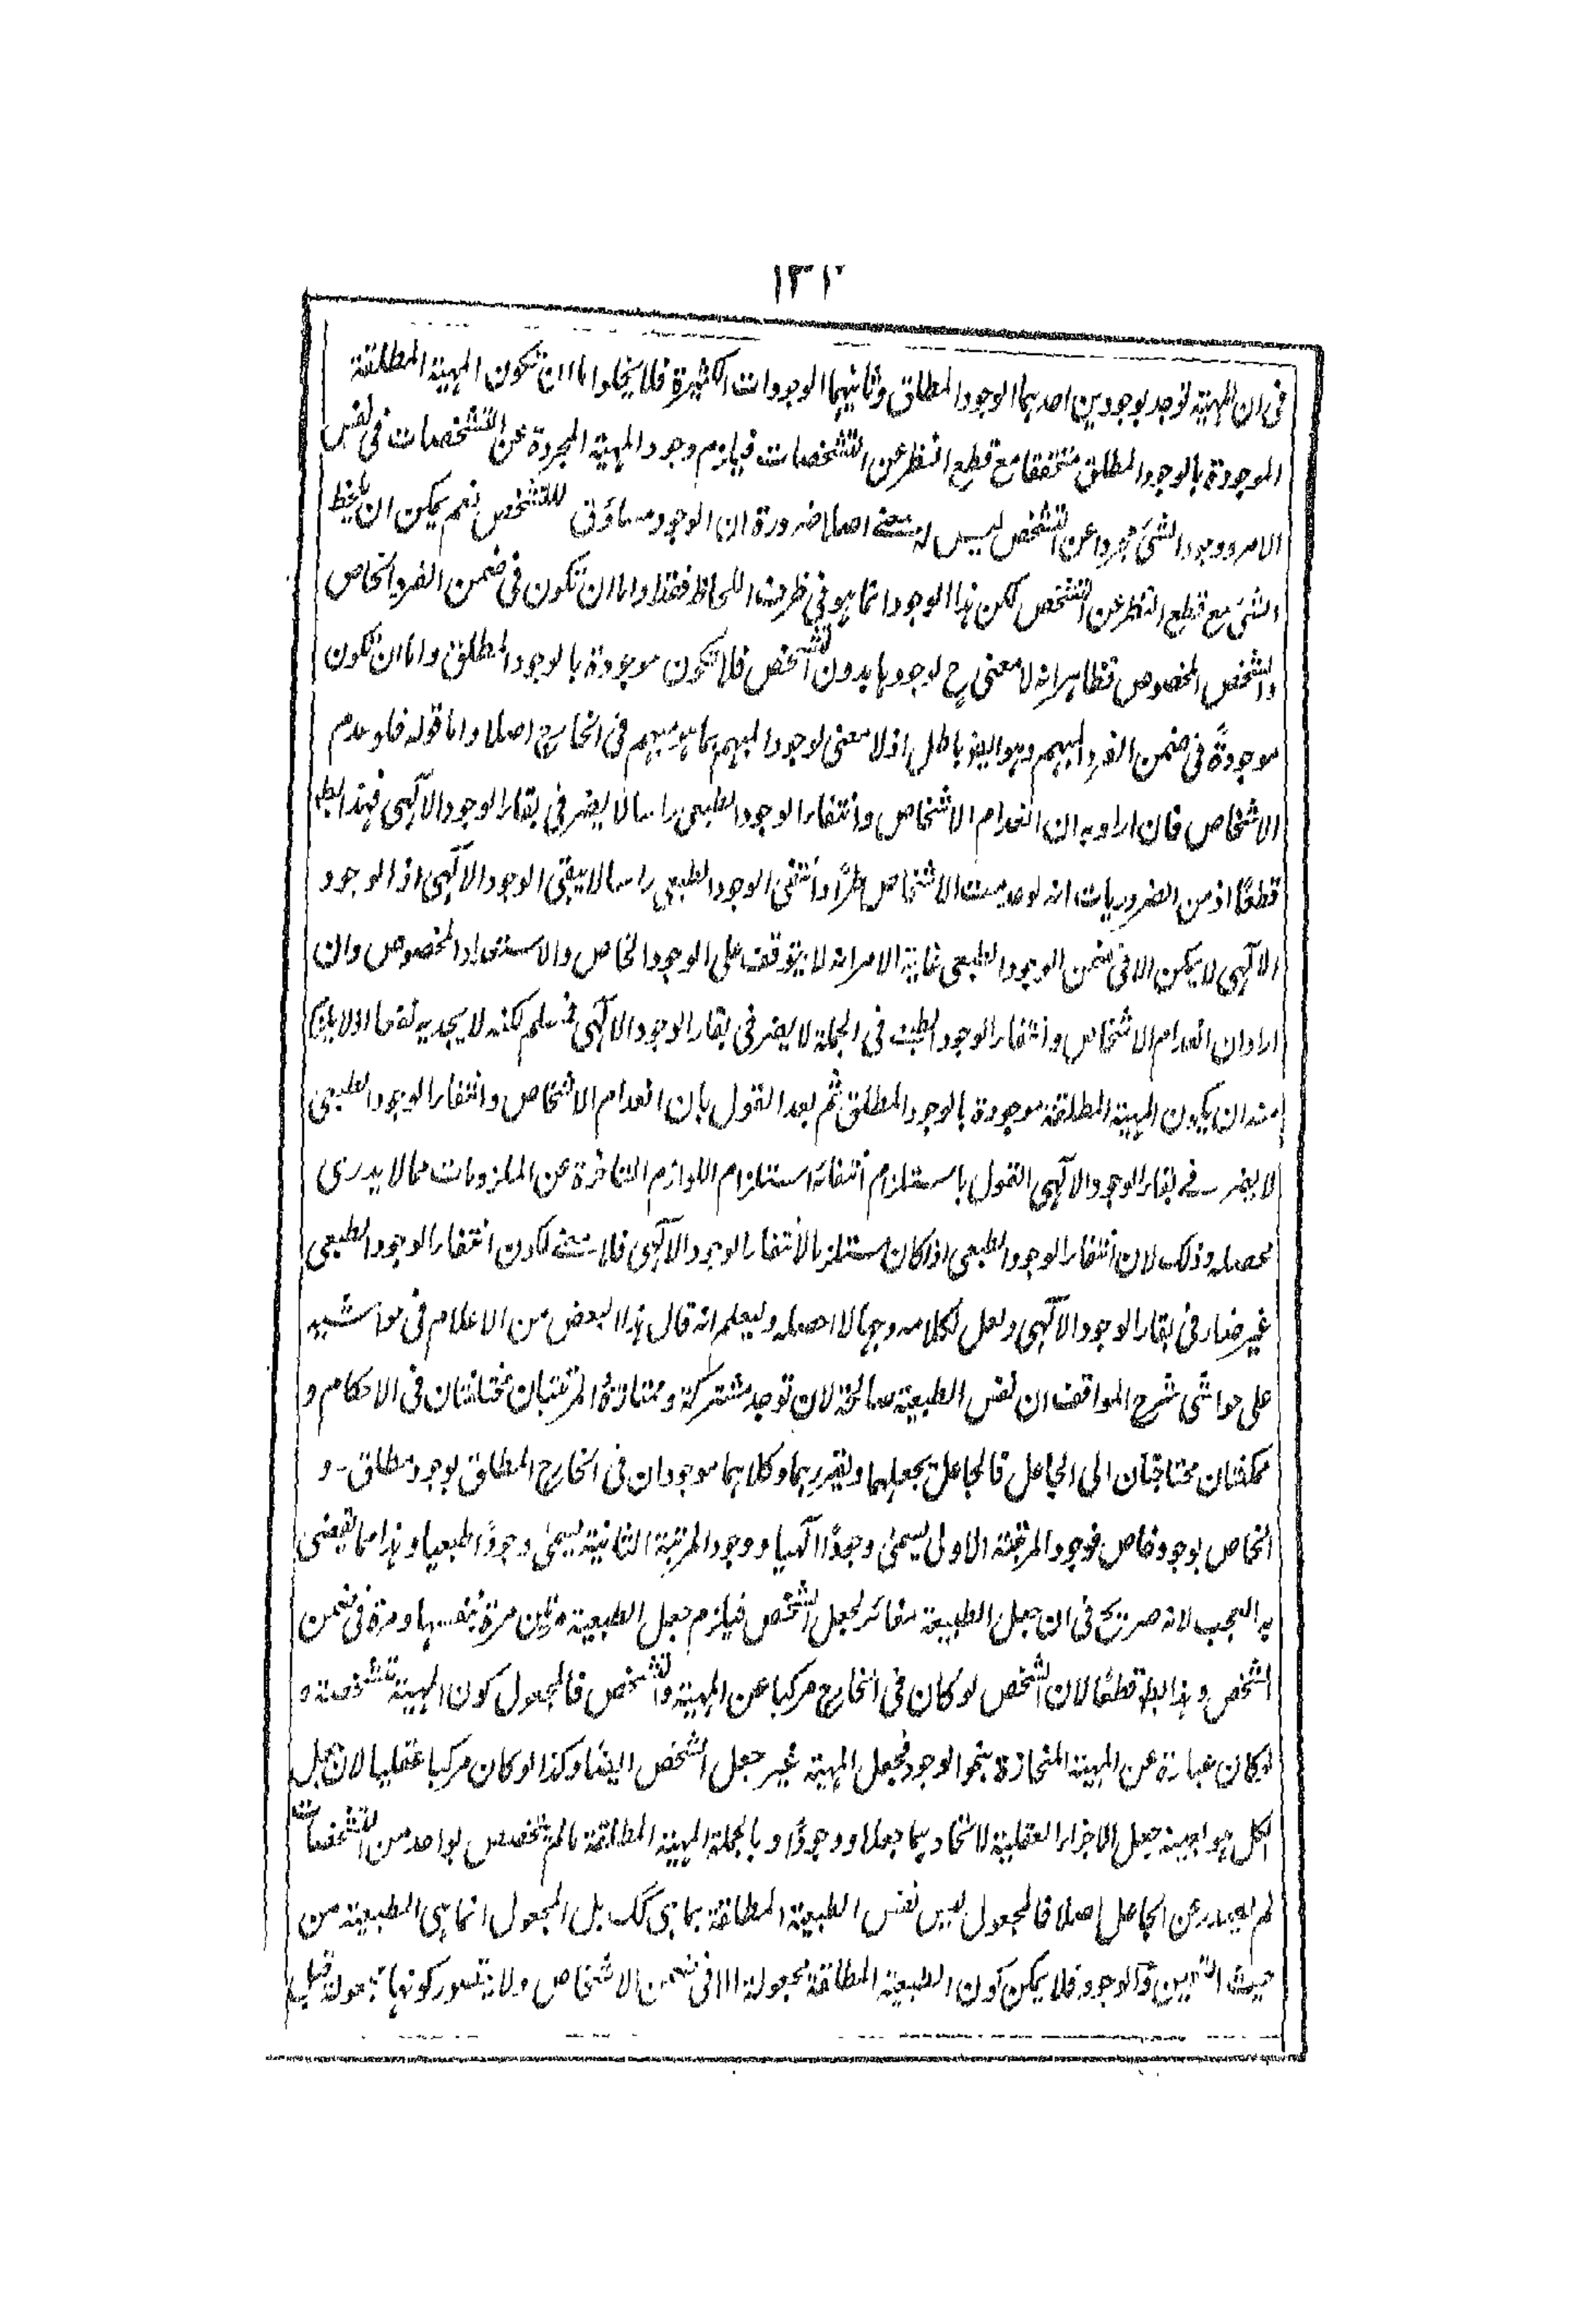 ١٣٢
فى ان المهية توجد بوجودين احدهما الوجود المطلق وثانيهما الوجودات الكثيرة فلا يخلوا اما ان تكون المهية المطلقة
الموجودة بالوجود المطلق متحققا مع قطع النظر عن التشخصات فيلزم وجود المهية المجردة عن التشخصات فى نفس
الامر ووجود الشئ مجردا عن التشخص ليس له معنے اصلا ضرورة ان الوجود مساوق للتشخص نعم يمكن ان يلحظ
الشئ مع قطع النظر عن التشخص لكن هذا الوجود انما هو فى ظرف اللحاظ فقط واما ان تكون فى ضمن الفرد الخاص
والشخص المخصوص فظاهر انه لا معنى ح لوجودها بدون التشخص فلا تكون موجودة بالوجود المطلق واما ان تكون
موجودة فى ضمن الفرد المبهم وهو ايضا باطل اذ لا معنى لوجود المبهم بما هو مبهم فى الخارج اصلا واما قوله فلو عدم
الاشخاص فان اراد به ان انعدام الاشخاص وانتفاء الوجود الطبعى راسا لا يضر فى بقاء الوجود الآلهى فهذا بط
قطعًا اذ من الضروريات انه لو عدمت الاشخاص طرًّا وانتفى الوجود الطبعى راسا لا يبقى الوجود الآلهى اذ الوجود
الآلهى لا يمكن الا فى ضمن الوجود الطبعى غاية الامر انه لا يتوقف على الوجود الخاص والاستعداد المخصوص وان
اراد ان انعدام الاشخاص وانتفاء الوجود الطبعى فى الجملة لا يضر فى بقاء الوجود الآلهى فمسلم لكنه لا يجديه نفعا اذ لا يلزم
منه ان يكون المهية المطلقة موجودة بالوجود المطلق ثم بعد القول بان انعدام الاشخاص وانتفاء الوجود الطبعى
لا يضر فے بقاء الوجود الآلهى القول باستلزام انتفائه استلزام اللوازم المتاخرة عن الملزومات مما لا يدرى
محصله وذلك لان انتفاء الوجود الطبعى اذا كان مستلزما لانتفاء الوجود الآلهى فلا معنے لكون انتفاء الوجود الطبعى
غير ضار فى بقاء الوجود الآلهى ولعل لكلامه وجها لا احصله وليعلم انه قال هذا البعض من الاعلام فى حواشيه
على حواشى شرح المواقف ان نفس الطبيعة صالحة لان توجد مشتركة وممتازة المرتبتان مختلفتان فى الاحكام و
ممكنتان محتاجتان الى الجاعل فالجاعل يجعلهما ويقررهما وكلاهما موجودان فى الخارج المطلق بوجود مطلق و
الخاص بوجود خاص فوجود المرتبة الاولى يسمى وجودًا آلهيا ووجود المرتبة الثانية يسمى وجودًا طبعيا وهذا مما يقضى
به العجب لانه صريح فى ان جعل الطبيعة مغائر لجعل الشخص فيلزم جعل الطبيعة مرتين مرة بنفسها ومرة فى ضمن
الشخص وهذا بط قطعًا لان الشخص لو كان فى الخارج مركبا عن المهية والتشخص فالمجعول كون المهية متشخصة و
لو كان عبارة عن المهية المنحازة بنحو الوجود فجعل المهية غير جعل الشخص ايضا وكذا لو كان مركبا عقليا لان جعل
الكل هو بعينه جعل الاجزاء العقلية لاتحادهما جعلا ووجودًا وبالجملة المهية المطلقة مالم تتخصص بواحد من التشخصات
لم يصدر عن الجاعل اصلا فالمجعول ليس نفس الطبيعة المطلقة بما هى كك بل المجعول انما هى الطبيعة من
حيث التعين والوجود فلا يمكن كون الطبيعة المطلقة مجعولة الا فى ضمن الاشخاص ولا يتصور كونها مجعولة قبل